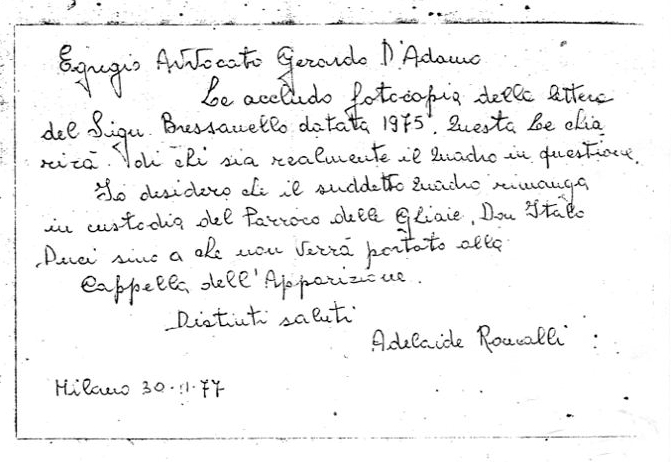 Egregio Avvocato Gerardo D'Adamo
Le accludo fotocopia della lettera
del Sign. Bressanello datata 1975. Questa Le chia
rirà di chi sia realmente il Quadro in questione.
Io desidero che il suddetto Quadro rimanga
in custodia del Parroco delle Ghiaie, Don Italo
Duci sino a che non verrà portato alla
Cappella dell'Apparizione.
Distinti saluti
Adelaide Roncalli
Milano 30-11-77